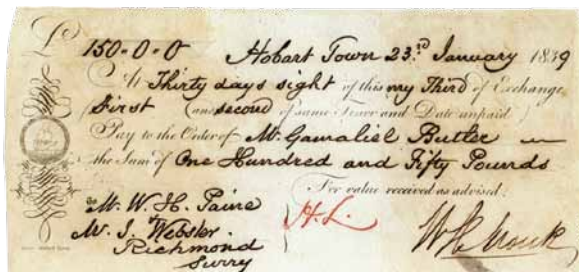 £ 150-0-0 Hobart Town 23rd January 1839
At Thirty days sight of this my Third of Exchange
First (and second of same Tenor and Date unpaid
Pay to the Order of Mr. Gamaliel Butler
the Sum of One Hundred and Fifty Pounds
For value received as advised:
To Mr. W. H. Paine H.L.
Mr. S. Webster.
Richmond
Surry